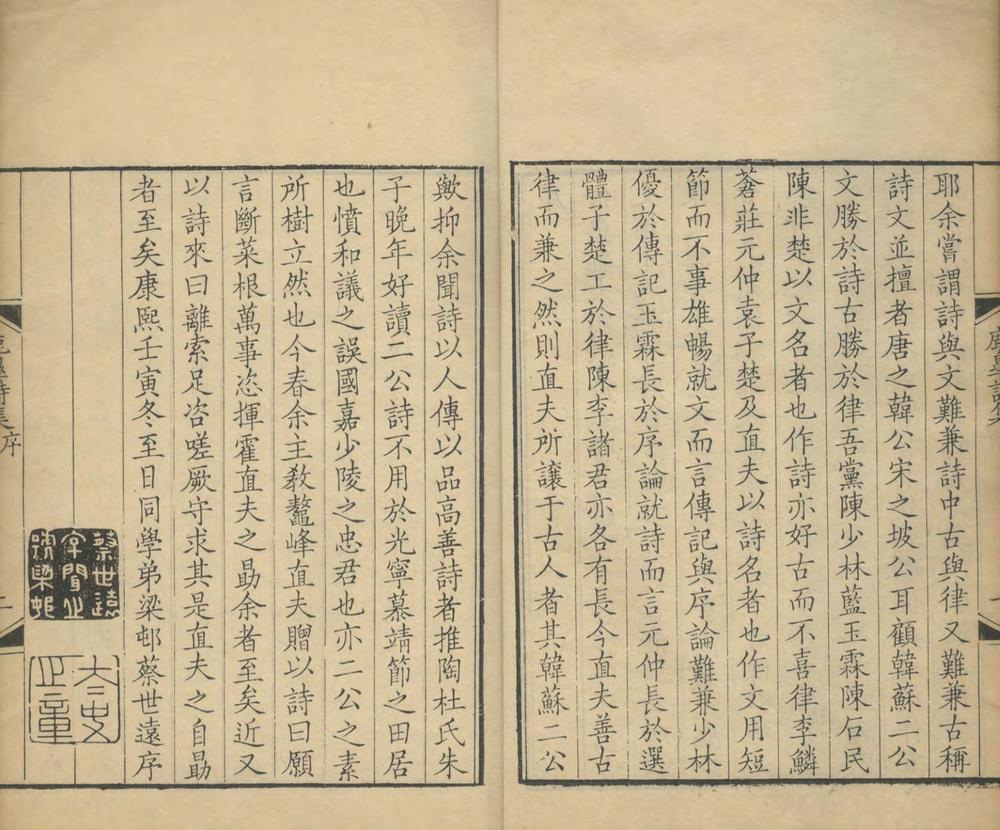 耶余嘗謂詩與文難兼詩中古與律又難兼古稱
詩文並擅者唐之韓公宋之坡公耳顧韓蘇二公
文勝於詩古勝於律吾黨陳少林藍玉霖陳石民
陳非楚以文名者也作詩亦好古而不喜律李鱗
蒼莊元仲袁子楚及直夫以詩名者也作文用短
節而不事雄暢就文而言傳記與序論難兼少林
優於傳記玉霖長於序論就詩而言元仲長於選
體子楚工於律陳李諸君亦各有長今直夫善古
律而兼之然則直夫所讓于古人者其韓蘇二公
歟抑余聞詩以人傳以品高善詩者推陶杜氏朱
子晚年好讀二公詩不用於光寧慕靖節之田居
也憤和議之誤國嘉少陵之忠君也亦二公之素
所樹立然也今春余主敎鼇峰直夫贈以詩曰願
言斷菜根萬事恣揮霍直夫之勖余者至矣近又
以詩來曰離索足咨嗟厥守求其是直夫之自勖
者至矣康熙壬寅冬至日同學弟梁邨蔡世遠序
蔡世遠
字聞之
號梁邨
詩集序
二